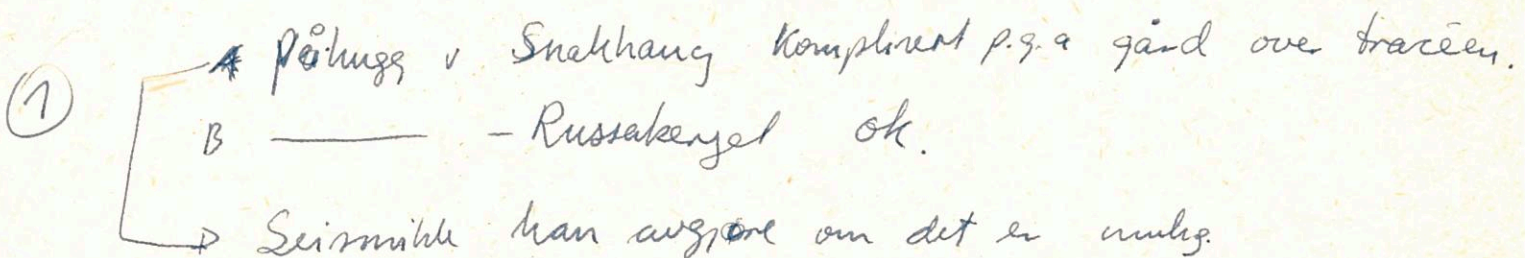 ① A Påhugg v Snekhaug Komplisert p.g.a gård over tracéen.
B ——— - Russekergel ok.
→ Seismikk kan avgjøre om det er mulig.